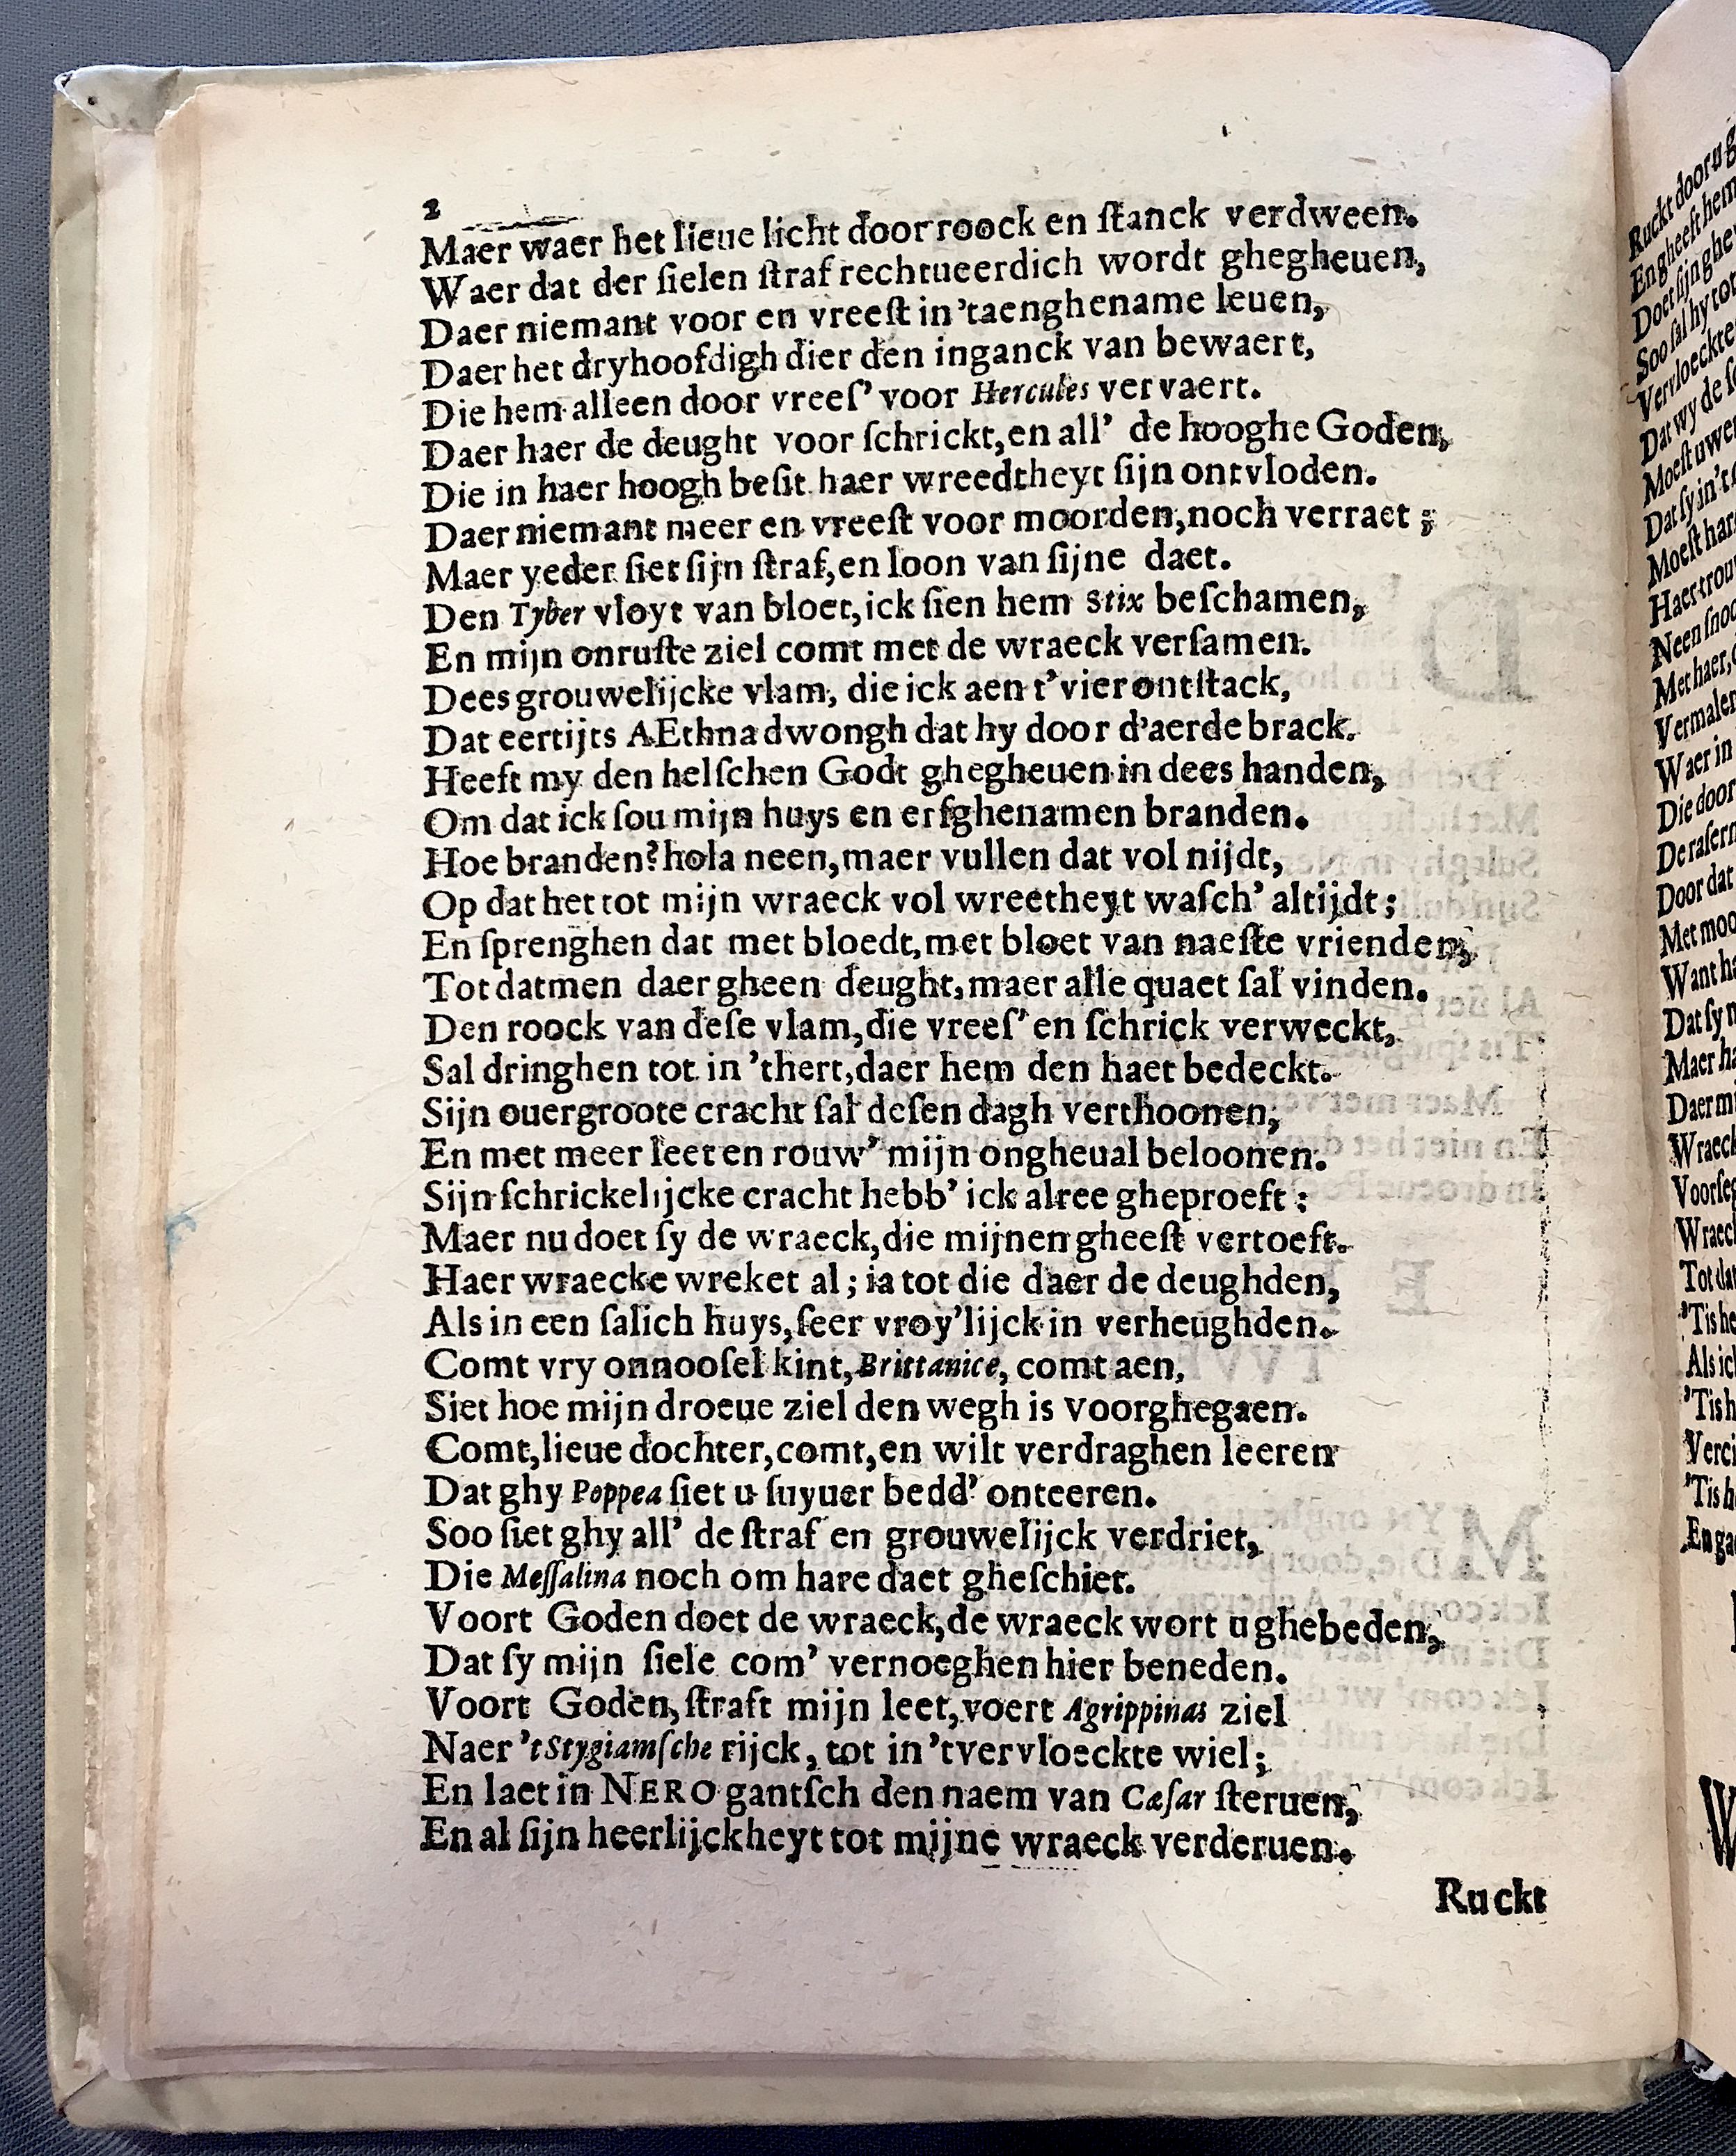 2
Maer waer het lieue licht door roock en ſtanck verdween.
Waer dat der ſielen ſtraf rechtueerdich wordt ghegheuen,
Daer niemant voor en vreeſt in 'taenghename leuen,
Daer het dryhoofdigh dier den inganck van bewaert,
Die hem alleen door vreeſ' voor Hercules vervaert.
Daer haer de deught voor ſchrickt, en all' de hooghe Goden,
Die in haer hoogh beſit haer wreedtheyt ſijn ontvloden.
Daer niemant meer en vreeſt voor moorden, noch verraet ;
Maer yeder ſiet ſijn ſtraf, en loon van ſijne daet.
Den Tyber vloyt van bloet, ick ſien hem Stix beſchamen,
En mijn onruſte ziel comt met de wraeck verſamen.
Dees grouwelijcke vlam, die ick aen t'vier ontſtack,
Dat eertijts AEthna dwongh dat hy door d'aerde brack.
Heeft my den helſchen Godt ghegheuen in dees handen,
Om dat ick ſou mijn huys en erfghenamen branden.
Hoe branden? hola neen, maer vullen dat vol nijdt,
Op dat het tot mijn wraeck vol wreetheyt waſch' altijdt ;
En ſprenghen dat met bloedt, met bloet van naeſte vrienden,
Tot datmen daer gheen deught, maer alle quaet ſal vinden.
Den roock van deſe vlam, die vreeſ' en ſchrick verweckt,
Sal dringhen tot in 'thert, daer hem den haet bedeckt.
Sijn ouergroote cracht ſal deſen dagh verthoonen,
En met meer leet en rouw' mijn ongheual beloonen.
Sijn ſchrickelijcke cracht hebb' ick alree gheproeft :
Maer nu doet ſy de wraeck, die mijnen gheeſt vertoeft.
Haer wraecke wreket al ; ia tot die daer de deughden,
Als in een ſalich huys, ſeer vroy'lijck in verheughden.
Comt vry onnooſel kint, Brittanice, comt aen,
Siet hoe mijn droeue ziel den wegh is voorghegaen.
Comt, lieue dochter, comt, en wilt verdraghen leeren
Dat ghy Poppea ſiet u ſuyuer bedd' onteeren.
Soo ſiet ghy all' de ſtraf en grouwelijck verdriet,
Die Meſſalina noch om hare daet gheſchiet.
Voort Goden doet de wraeck, de wraeck wort u ghebeden,
Dat ſy mijn ſiele com' vernoeghen hier beneden.
Voort Goden, ſtraft mijn leet, voert Agrippinas ziel
Naer 't Stygiamſche rijck, tot in 'tvervloeckte wiel ;
En laet in NERO gantſch den naem van Cæſar ſteruen,
En al ſijn heerlijckheyt tot mijne wraeck verderuen.
Ruckt
Ruckt door u
En gheeft hem
Doet ſijn ghe
Soo ſal hy tot
Vervloeckte
Dat wy de
Moeſt uwe
Dat ſy in 't
Moeſt har
Haer trou
Neen ſnoo
Met haer,
Vermaler
Waer in
Die door
De raſern
Door dat
Met moo
Want ha
Dat ſy
Maer ha
Daer m
Wraeck
Voorſeg
Wraec
Tot dat
'Tis he
Als ick
'Tis h
Verei
'Tis h
En gae
W